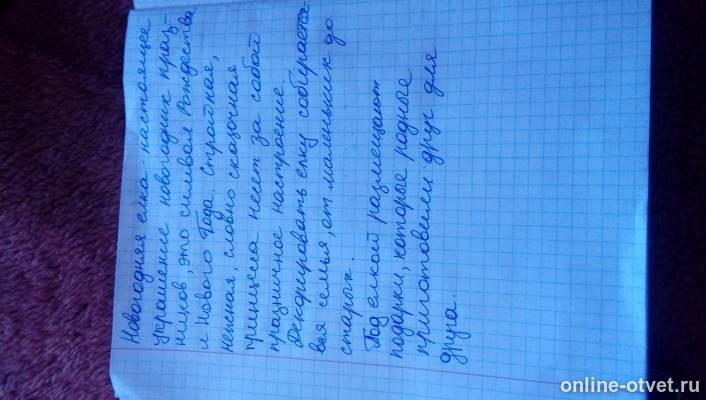 Новогодняя елка - настоящее
украшение новогодних празд-
ников, это символ Рождества
и Нового Года. Стройная,
нежная, словно сказочная
чицела несет за собой
праздничное настроение
Декорировать елку собирается
вся семья, от маленьких до
старых.
Под елкой размещают
подарки, которые родные
приготовили друг для
друга.
online-otvet.ru